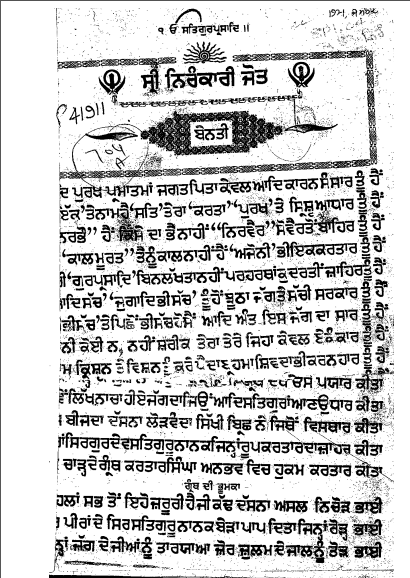 ੧ ੳ ਸਤਿਗੁਰਪ੍ਰਸਾਦਿ ॥
ਸ੍ਰੀ ਨਿਰੰਕਾਰੀ ਜੋਤ
ਬੇਨਤੀ
ਦਿ ਪੁਰਖ ਪਮਾਤਮਾਂ ਜਗਤ ਪਿਤਾ ਕੇਵਲ ਆਦਿ ਕਾਰਨ ਸੰਸਾਰ ਹੈਂ
ਇੱਕ' ਤੇ ਨਾਮ ਹੈ 'ਸਤਿ' ਤੇਰਾ 'ਕਰਤਾ' 'ਪੁਰਖ' ਤੋਂ ਸ੍ਰਿਸ਼ੂ ਆਧਾਰ ਹੈਂ
ਨਰਭੌ'' ਹੈਂ ਕਿਸੇ ਦਾ ਭੈ ਨਾਹੀਂ ''ਨਿਰਵੈਰ'' ਸੋ ਵੈਰ ਤੋਂ ਬਾਹਿਰ ਹੈਂ
'ਕਾਲ ਮੂਰਤ' ਤੈਨੂੰ ਕਾਲ ਨਾਹੀਂ ਹੈਂ 'ਅਜੋਨੀ' ਭੀ ਇਕ ਕਰਤਾਰ ਹੈਂ
'ਗੁਰਪ੍ਰਸਾਦਿ' ਬਿਨ ਲਖਤਾ ਨਹੀਂ ਪਰ ਹਰ ਥਾਂ ਕੁਦਰਤੀਂ ਜ਼ਾਹਿਰ ਹੈਂ
ਆਦਿ ਸੱਚ' 'ਜੁਗਾਦਿ ਭੀ ਸੱਚ' ਤੂੰਹੋਂ ਝੂਠਾ ਜੱਗ ਤੈ ਸੱਚੀ ਸਰਕਾਰ ਹੈਂ
ਭੀ ਸੱਚ' ਤੇ ਪਿਛੋਂ ਭੀ ਸੱਚ ਹੋਸੇਂ ਆਦਿ ਅੰਤ ਇਸ ਜੱਗ ਦਾ ਸਾਰ ਹੈਂ
ਨੀ ਕੋਈ ਨ, ਨਹੀਂ ਸ਼ਰੀਕ ਤੇਰਾ ਤੇਰੇ ਜਿਹਾ ਕੇਵਲ ਏਕੰਕਾਰ ਹੈਂ
ਮ ਕ੍ਰਿਸ਼ਨ ਤੇ ਵਿਸ਼ਨੂੰ ਬ੍ਰਹਮਾ ਸ਼ਿਵ ਦਾ ਭੀ ਕਰਨਹਾਰ ਹੈਂ
ਪਯਾਰ ਕੀਤਾ
ਲਿਖਨਾ ਚਾਹੀਏ ਜੱਗ ਦਾ ਜਿਉਂ ਆਦਿ ਸਤਿਗੁਰਾਂ ਆਣ ਉਧਾਰ ਕੀਤਾ
ਬੀਜਦਾ ਦੱਸਨਾ ਲੋੜਵੰਦਾ ਸਿੱਖੀ ਬ੍ਰਿਛ ਨੇ ਜਿਥੋਂ ਵਿਸਥਾਰ ਕੀਤਾ
ਸਿਰ ਗੁਰਦੇਵ ਸਤਿਗੁਰੂ ਨਾਨਕ ਜਿਨ੍ਹਾਂ ਰੂਪ ਕਰਤਾਰ ਦਾ ਜ਼ਾਹਰ ਕੀਤਾ
ਚਾੜ੍ਹਦੇ ਗ੍ਰੰਥ ਕਰਤਾਰ ਸਿੰਘਾ ਅਨਭਵ ਵਿਚ ਹੁਕਮ ਕਰਤਾਰ ਕੀਤਾ
ਗ੍ਰੰਥ ਦੀ ਭੂਮਕਾ
ਹਲਾਂ ਸਭ ਤੋਂ ਇਹੋ ਜ਼ਰੂਰੀ ਹੈ ਜੀ ਕੱਢ ਦੱਸਨਾ ਅਸਲ ਨਿਚੋੜ ਭਾਈ
ਪੀਰਾਂ ਦੇ ਸਿਰ ਸਤਿਗੁਰੂ ਨਾਨਕ ਬੇੜਾ ਪਾਪ ਦਿਤਾ ਜਿਨ੍ਹਾਂ ਰੋੜ੍ਹ ਭਾਈ
ਨ੍ਹਾਂ ਜੱਗ ਦੇ ਜੀਆਂ ਨੂੰ ਤਾਰਯਾਆ ਜ਼ੋਰ ਜ਼ੁਲਮ ਦੇ ਜਾਲ ਨੂੰ ਤੋੜ ਭਾਈ